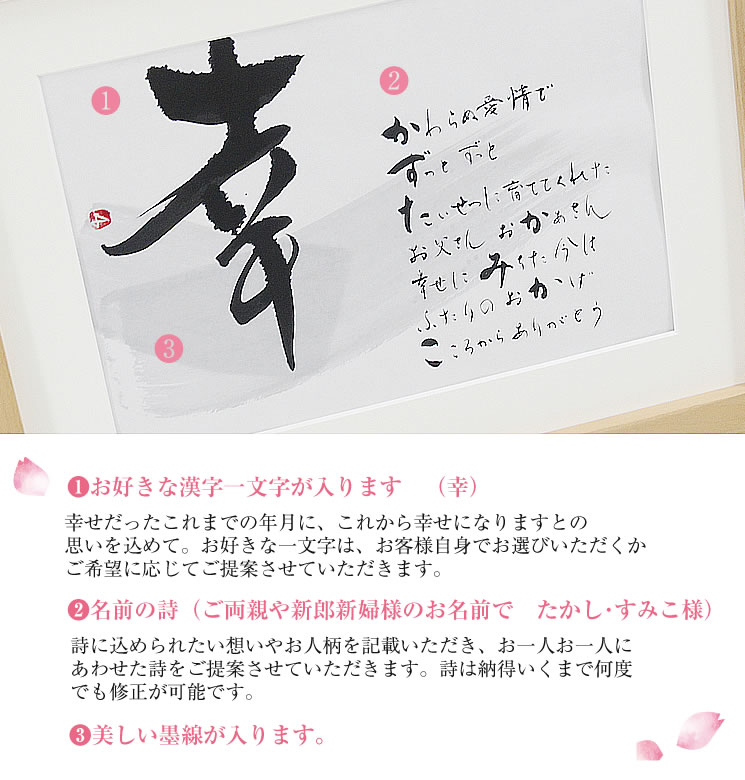 ❶
幸
❷
かわらぬ愛情で
ずっとずっと
たいせつに育ててくれた
お父さん おかあさん
幸せにみちた今は
ふたりのおかげ
こころからありがとう
❸
❶お好きな漢字一文字が入ります （幸）
幸せだったこれまでの年月に、これから幸せになりますとの
思いを込めて。お好きな一文字は、お客様自身でお選びいただくか
ご希望に応じてご提案させていただきます。
❷名前の詩（ご両親や新郎新婦様のお名前で たかし・すみこ様）
詩に込められたい想いやお人柄を記載いただき、お一人お一人に
あわせた詩をご提案させていただきます。詩は納得いくまで何度
でも修正が可能です。
❸美しい墨線が入ります。